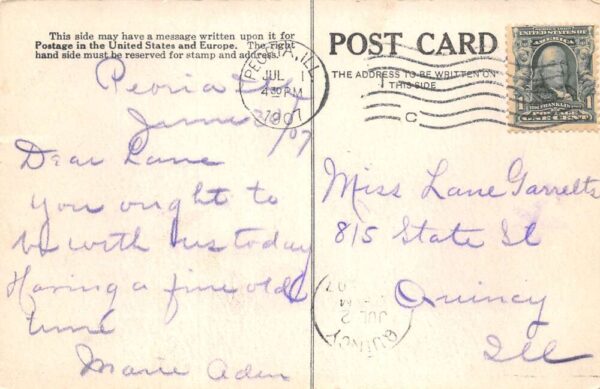 This side may have a message written upon it for
Postage in the United States and Europe. The right
hand side must be reserved for stamp and address.
Peoria Ill
June 30/07
Dear Lane
You ought to
be with us today
Having a fine old
time
Marie Aden
PEORIA, ILL.
JUL 1
4 30 PM
1907
C
POST CARD
THE ADDRESS TO BE WRITTEN ON
THIS SIDE
UNITED STATES OF
AMERICA
FRANKLIN
1 1
ONE CENT
Miss Lane Garrelts
815 State St
Quincy
Ill
QUINCY
JUL 2
M
07